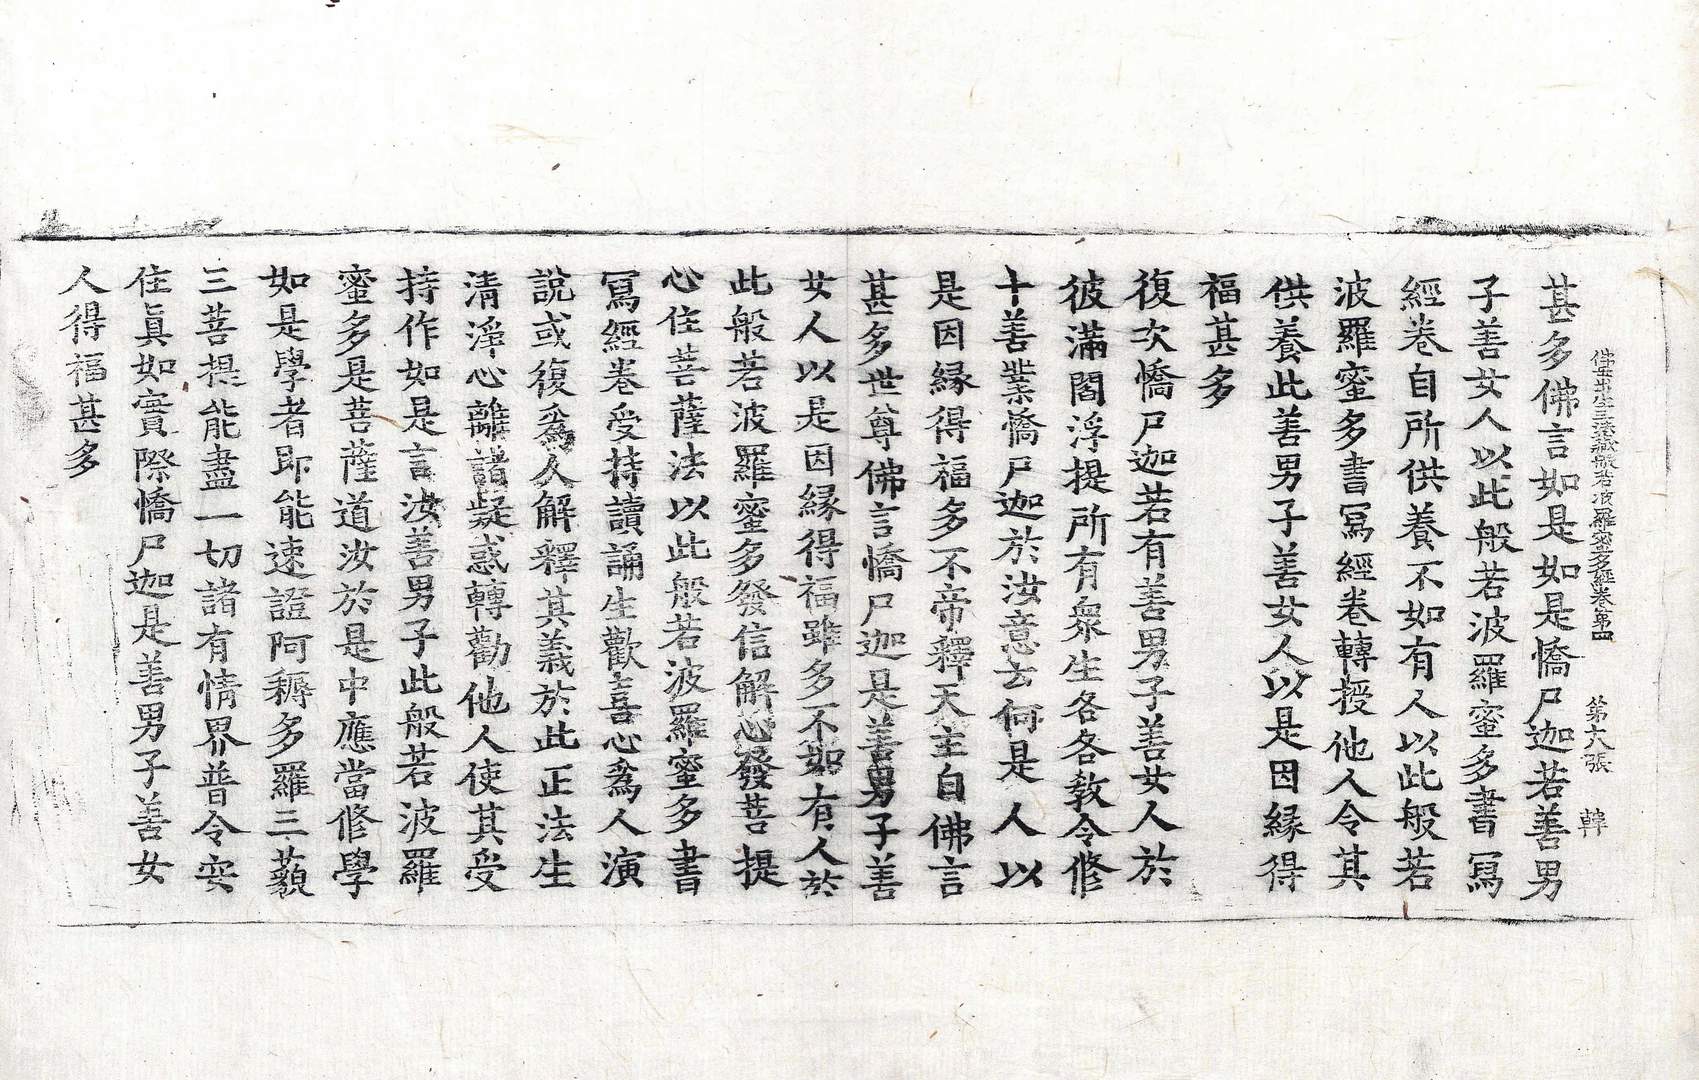 佛母出生三法藏般若波羅蜜多經卷第四　第六張　韓
甚多佛言如是如是憍尸迦若善男
子善女人以此般若波羅蜜多書寫
經卷自所供養不如有人以此般若
波羅蜜多書寫經卷轉授他人令其
供養此善男子善女人以是因緣得
福甚多
復次憍尸迦若有善男子善女人於
彼滿閻浮提所有衆生各各教令修
十善業憍尸迦於汝意云何是人以
是因緣得福多不帝釋天主白佛言
甚多世尊佛言憍尸迦是善男子善
女人以是因緣得福雖多不如有人於
此般若波羅蜜多發信解心發菩提
心住菩薩法以此般若波羅蜜多書
寫經卷受持讀誦生歡喜心爲人演
說或復爲人解釋其義於此正法生
清淨心離諸疑惑轉勸他人使其受
持作如是言汝善男子此般若波羅
蜜多是菩薩道汝於是中應當修學
如是學者即能速證阿耨多羅三藐
三菩提能盡一切諸有情界普令安
住眞如實際憍尸迦是善男子善女
人得福甚多